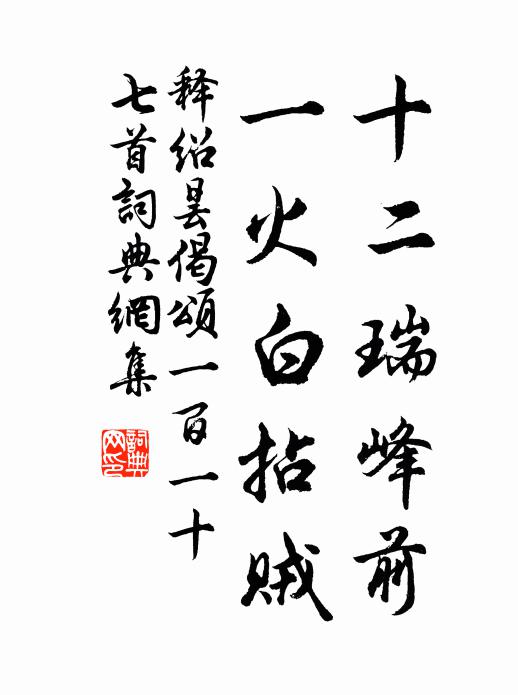 十二瑞峰前
一火白拈贼
释绍昙偈頌一百一十
七首詞典網集
詞典
网印